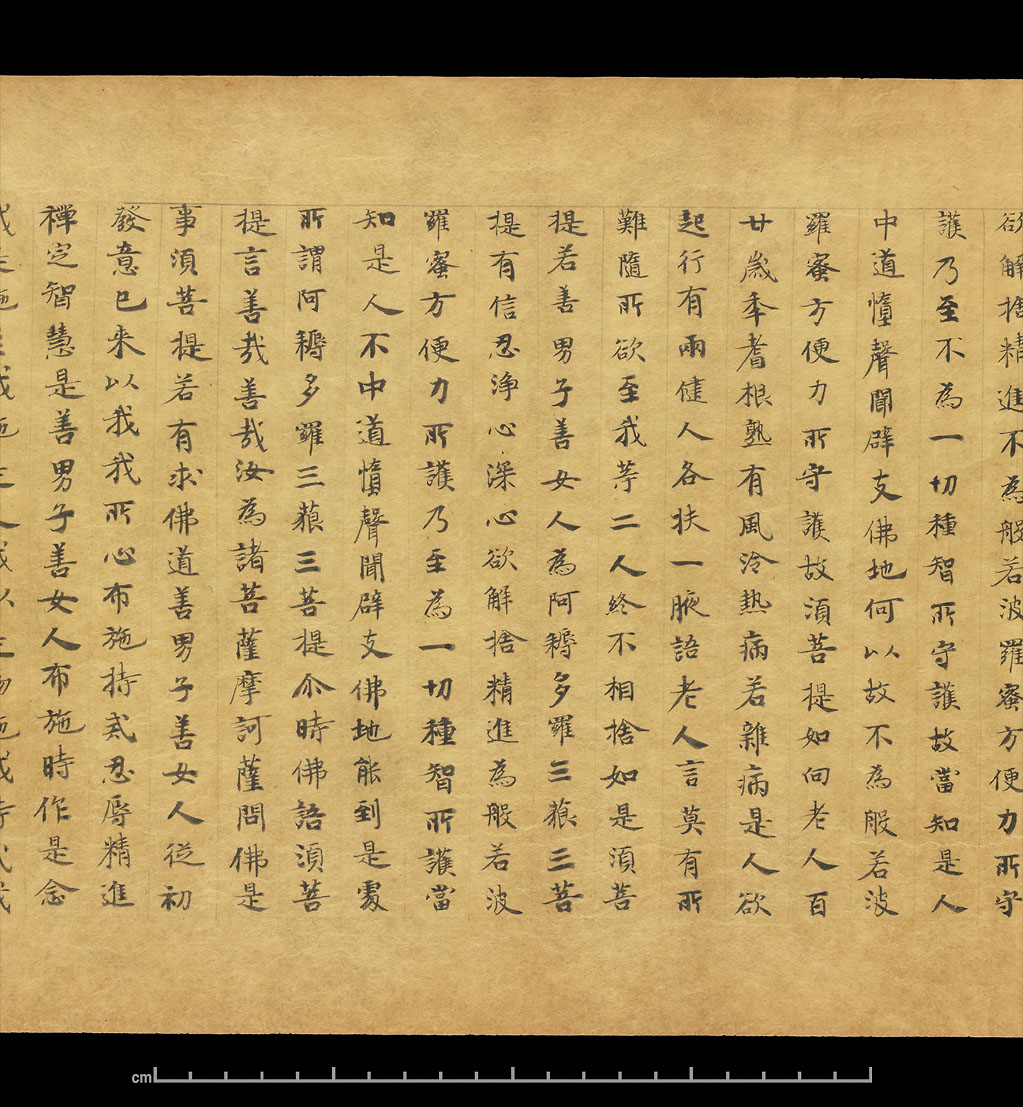 欲解捨精進不為般若波羅蜜方便力所守
護乃至不為一切種智所守護故當知是人
中道憻聲聞辟支佛地何以故不為般若波
羅蜜方便力所守護故須菩提如向老人百
廿歲年耆根熟有風泠熱病若雜病是人欲
起行有兩健人各扶一腋語老人言莫有所
難隨所欲至我䓁二人終不相捨如是須菩
提若善男子善女人為阿耨多羅三藐三菩
提有信忍淨心深心欲解捨精進為般若波
羅蜜方便力所護乃至為一切種智所護當
知是人不中道憻聲聞辟支佛地能到是處
所謂阿耨多羅三藐三菩提尒時佛語須菩
提言善哉善哉汝為諸菩薩摩訶薩問佛是
事須菩提若有求佛道善男子善女人從初
發意已來以我我所心布施持戒忍辱精進
禪定智慧是善男子善女人布施時作是念